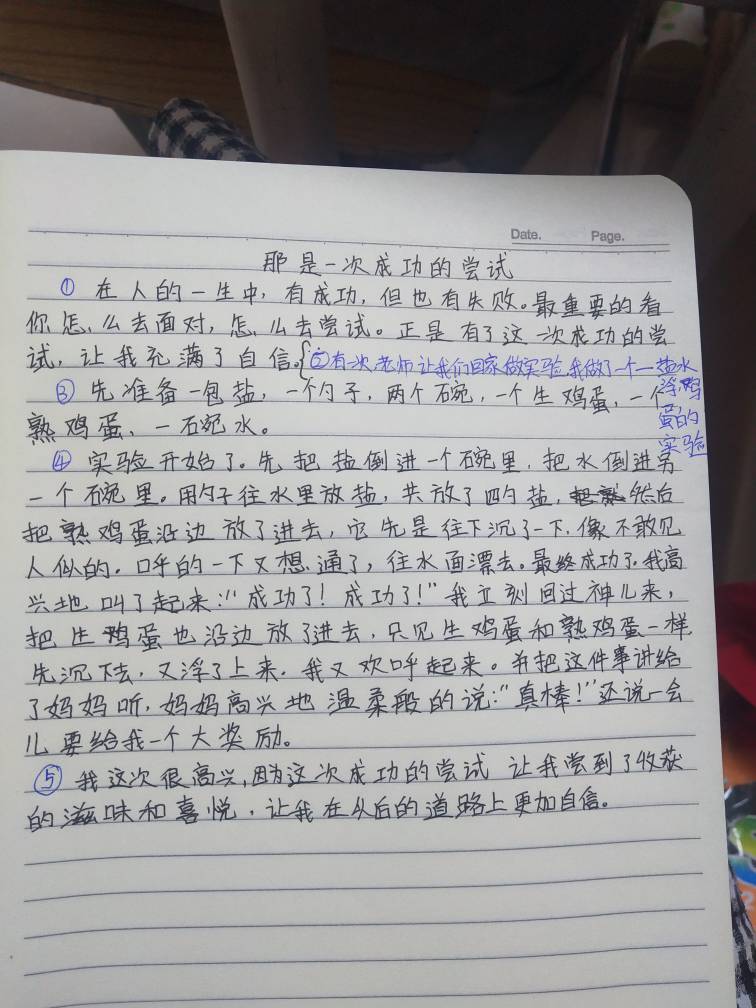 Date. Page.
那是一次成功的尝试
① 在人的一生中，有成功，但也有失败。最重要的看
你怎么去面对，怎么去尝试。正是有了这一次成功的尝
试，让我充满了自信。{②有一次老师让我们回家做实验，我做了一个一盐水
浮鸡
蛋的
实验
③ 先准备一包盐，一个勺子，两个碗，一个生鸡蛋，一个
熟鸡蛋、一碗水。
④ 实验开始了。先把盐倒进一个碗里，把水倒进另
一个碗里。用勺子往水里放盐，共放了四勺盐，然后
把熟鸡蛋沿边放了进去，它先是往下沉了一下，像不敢见
人似的。呼的一下又想通了，往水面漂去。最终成功了。我高
兴地叫了起来：“成功了！成功了！”我立刻回过神儿来，
把生鸭蛋也沿边放了进去，只见生鸡蛋和熟鸡蛋一样，
先沉下去，又浮了上来。我又欢呼起来。并把这件事讲给
了妈妈听，妈妈高兴地温柔般的说：“真棒！”还说一会
儿要给我一个大奖励。
⑤ 我这次很高兴，因为这次成功的尝试 让我尝到了收获
的滋味和喜悦，让我在从后的道路上更加自信。